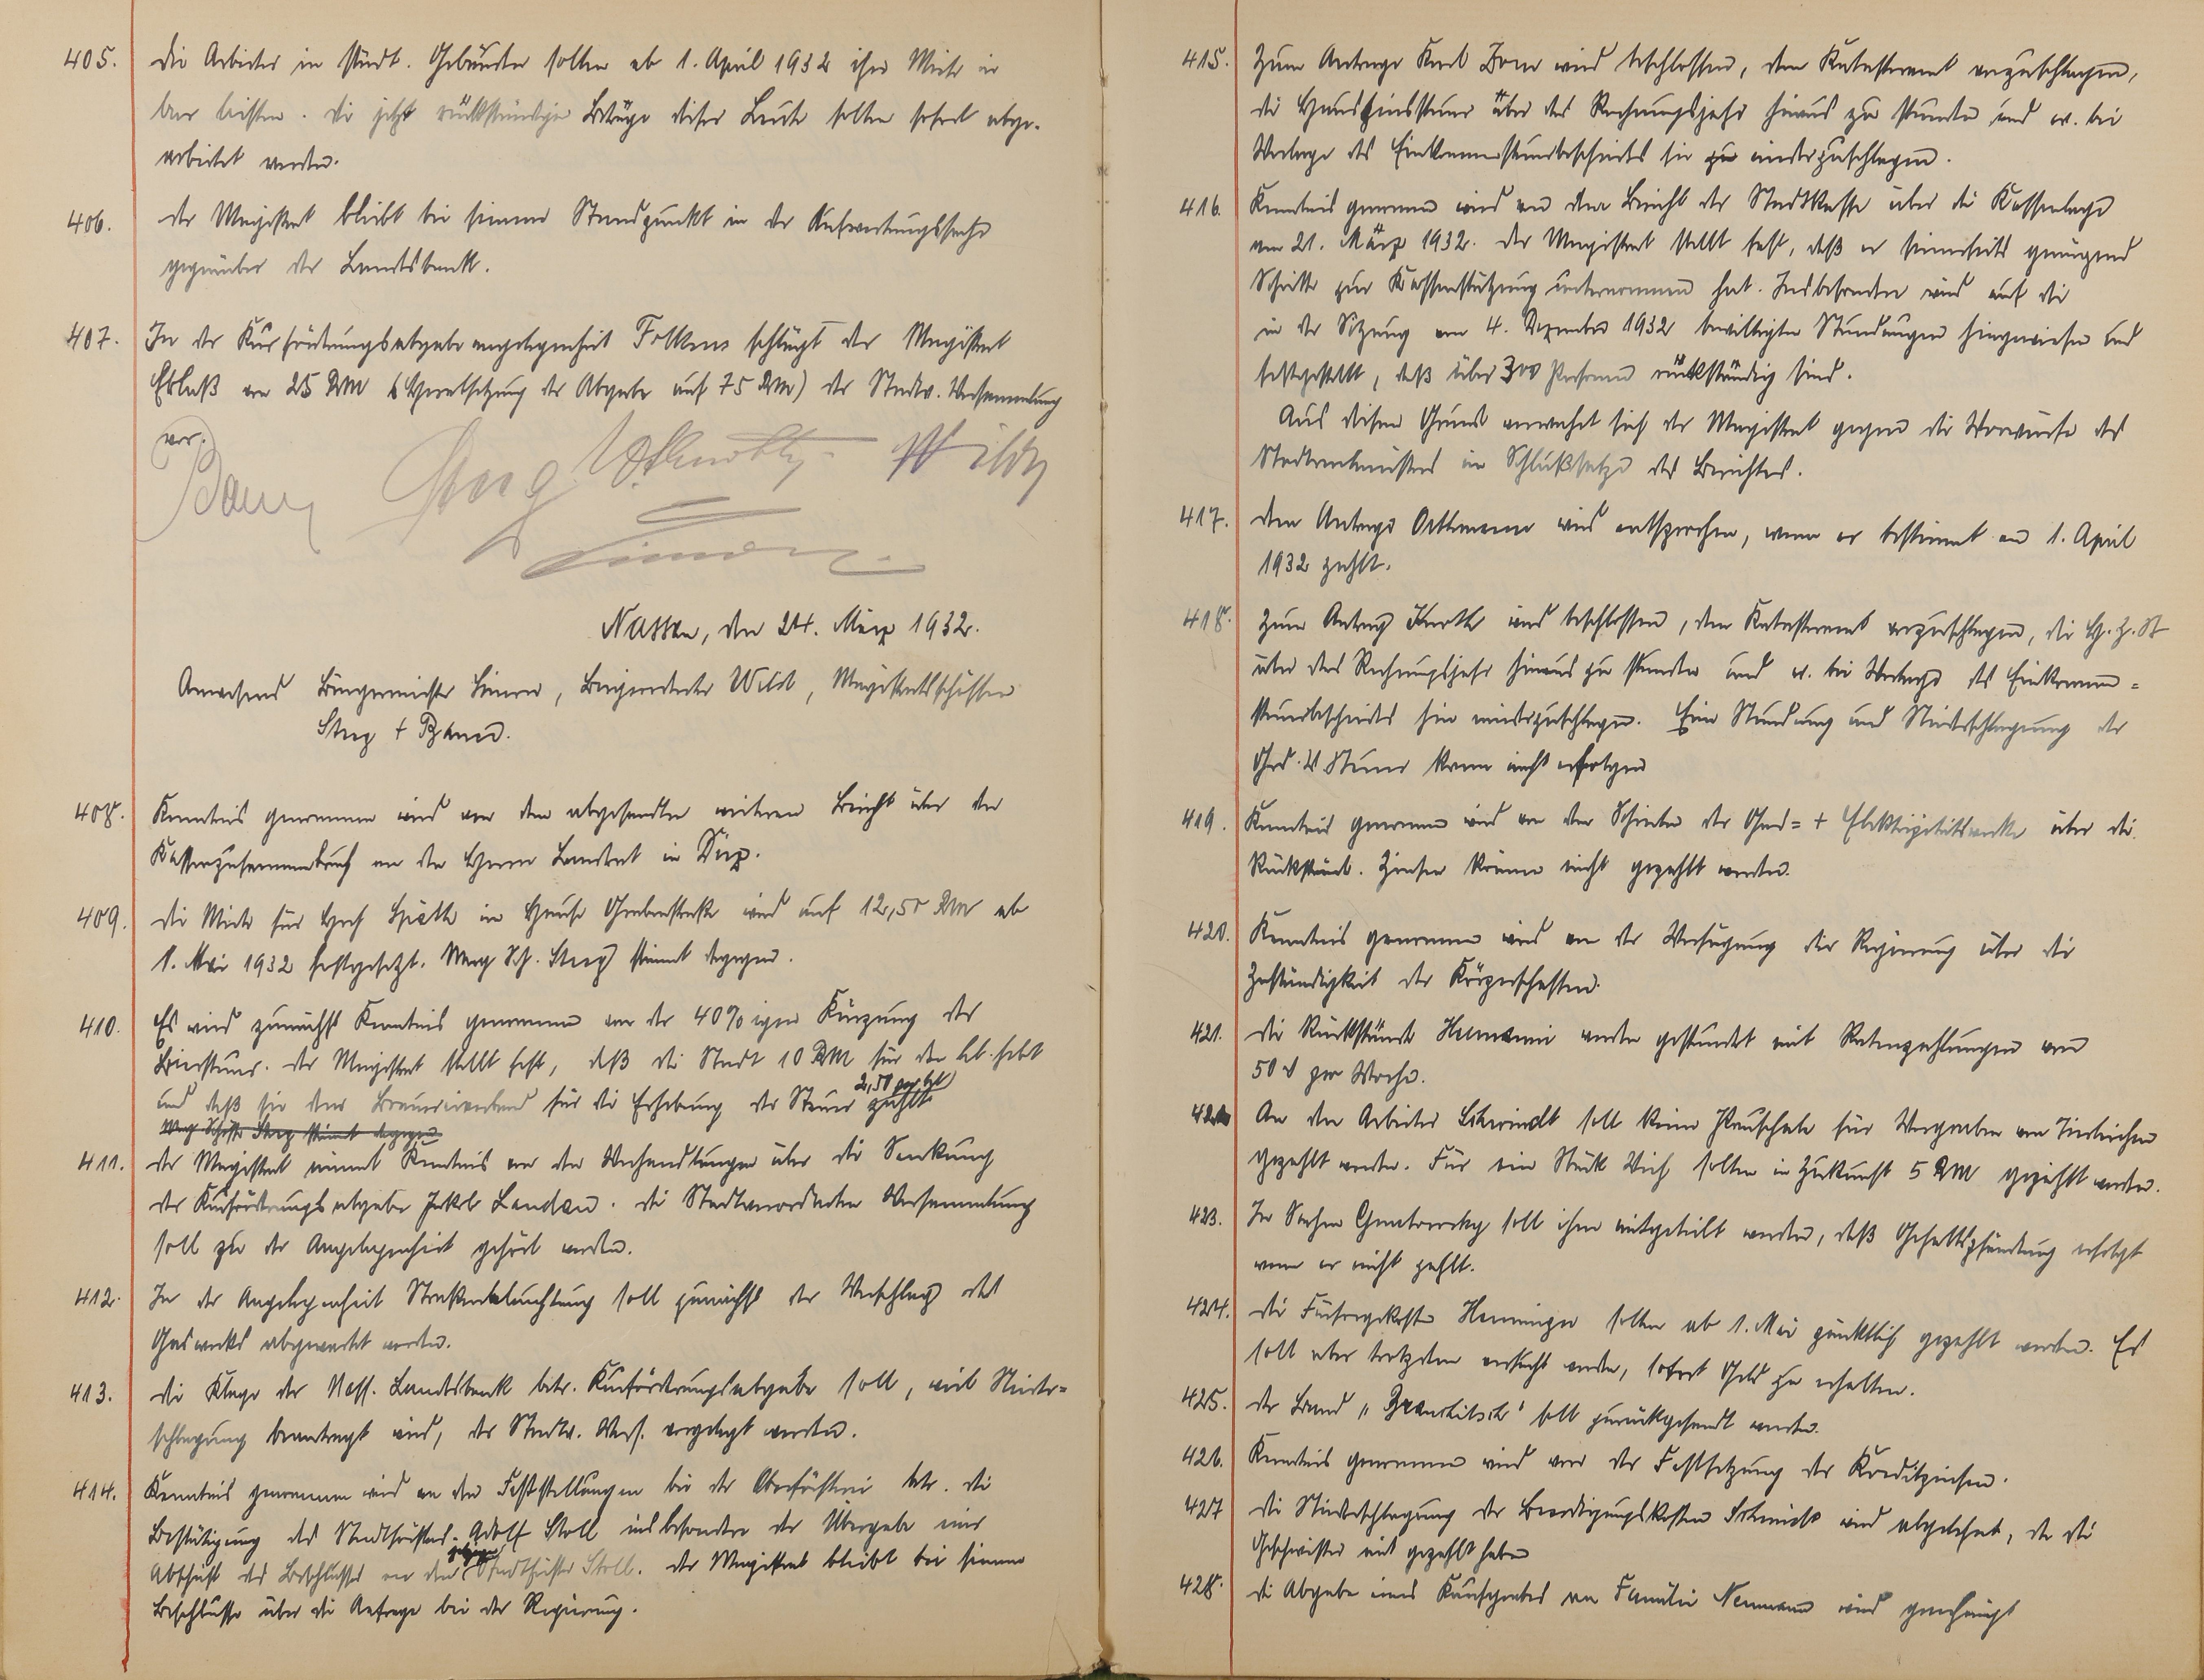 405. Die Arbeiter in städt. Gebäuden sollen ab 1. April 1932 ihre Miete in
bar leisten. Die jetzt rückständige Beträge dieser Leute sollen sofort abge-
arbeitet werden.
406. Der Magistrat bleibt bei seinem Standpunkt in der Aufwertungssache
gegenüber der Landesbank.
407. In der Kurförderungsabgabeangelegenheit Folkens schlägt der Magistrat
Erlaß von 25 RM (Herabsetzung der Abgabe auf 75 RM) der Stadtv. Versammlung
vor.
Nassau, den 24. März 1932.
Anwesend Bürgermeister Simon, Beigeordneter Wildt, Magistratsschöffen
Steeg + Baum.
408. Kenntnis genommen wird von dem abgesandten weiteren Bericht über den
Kassenzusammenbruch an den Herrn Landrat in Diez.
409. Die Miete für Späth im Hause Grabenstraße wird auf 12,50 RM ab
1. Mai 1932 festgesetzt. Mag. Sch. Steeg stimmt dagegen.
410. Es wird zunächst Kenntnis genommen von der 40%igen Kürzung der
Biersteuer. Der Magistrat stellt fest, daß die Stadt 10 RM für den hl. hebt
und daß sie dem Brauereiverband für die Erhebung der Steuer 2,50 zahlt
Mag. Schöffe Steeg stimmt dagegen
411. Der Magistrat nimmt Kenntnis von den Verhandlungen über die Senkung
der Kurförderungsabgabe Jakob Landau. Die Stadtverordneten Versammlung
soll zu der Angelegenheit gehört werden.
412. In der Angelegenheit Straßenbeleuchtung soll zunächst der Vorschlag des
Gaswerks abgewartet werden.
413. Die Klage der Nass. Landesbank betr. Kurförderungsabgabe soll, weil Nieder-
schlagung beantragt wird, der Stadtv. Vers. vorgelegt werden.
414. Kenntnis genommen wird von den Feststellungen bei der Oberförsterei betr. die
Bestätigung des Stadtförsters Adolf Stoll insbesondere der Übergabe einer
Abschrift des Beschlusses an den Stadtförster Stoll. Der Magistrat bleibt bei seinem
Beschlusse über die Anfrage bei der Regierung.
415. Zum Antrage Karl Dorn wird beschlossen, dem Katasteramt vorzuschlagen,
die Hauszinssteuer über das Rechnungsjahr hinaus zu stunden und ev. bei
Vorlage des Einkommensteuerbescheides sie niederzuschlagen.
416. Kenntnis genommen wird von dem Bericht der Stadtkasse über die Kassenlage
vom 21. März 1932. Der Magistrat stellt fest, daß er seinerseits genügend
Schritte zur Kassenstützung unternommen hat. Insbesondere wird auf die
in der Sitzung vom 4. Dezember 1932 bewilligten Stundungen hingewiesen und
festgestellt, daß über 300 Personen rückständig sind.
Aus diesem Grund verwahrt sich der Magistrat gegen die Vorwürfe des
Stadtrentmeisters im Schlußsatze des Berichtes.
417. Dem Antrage Ortmann wird entsprochen, wenn er bestimmt am 1. April
1932 zahlt.
418. Zum Antrag wird beschlossen, dem Katasteramt vorzuschlagen, die H. Z. St
über das Rechnungsjahr hinaus zu stunden und ev. bei Vorlage des Einkommen-
steuerbescheides sie niederzuschlagen. Eine Stundung und Niederschlagung der
Grd. V. Steuer kann nicht erfolgen
419. Kenntnis genommen wird von dem Schreiben der Gas- + Elektrizitätswerke über die
Rückstände. Zinsen können nicht gezahlt werden.
420. Kenntnis genommen wird von der Verfügung der Regierung über die
Zuständigkeit der Körperschaften.
421. Die Rückstände Hermani werden gestundet mit Ratenzahlungen von
50 ₰ pro Woche.
422 An den Arbeiter Schwindt soll keine Pauschale für Vergraben von Tierleichen
gezahlt werden. Für ein Stück Vieh sollen in Zukunft 5 RM gezahlt werden.
423. In Sachen soll ihm mitgeteilt werden, daß Gehaltspfändung erfolgt
wenn er nicht zahlt.
424. Die Fürsorgekosten Henninger sollen ab 1. Mai pünktlich gezahlt werden. Es
soll aber trotzdem versucht werden, sofort Geld zu erhalten.
425. Der Band „Brauchitsch" soll zurückgesandt werden.
426. Kenntnis genommen wird von der Festsetzung der Kreditzinsen.
427 Die Niederschlagung der Beerdigungskosten Schmidt wird abgelehnt, da die
Geschwister mit gezahlt haben
428. Die Abgabe eines Kaufgrabes an Familie Neumann wird genehmigt